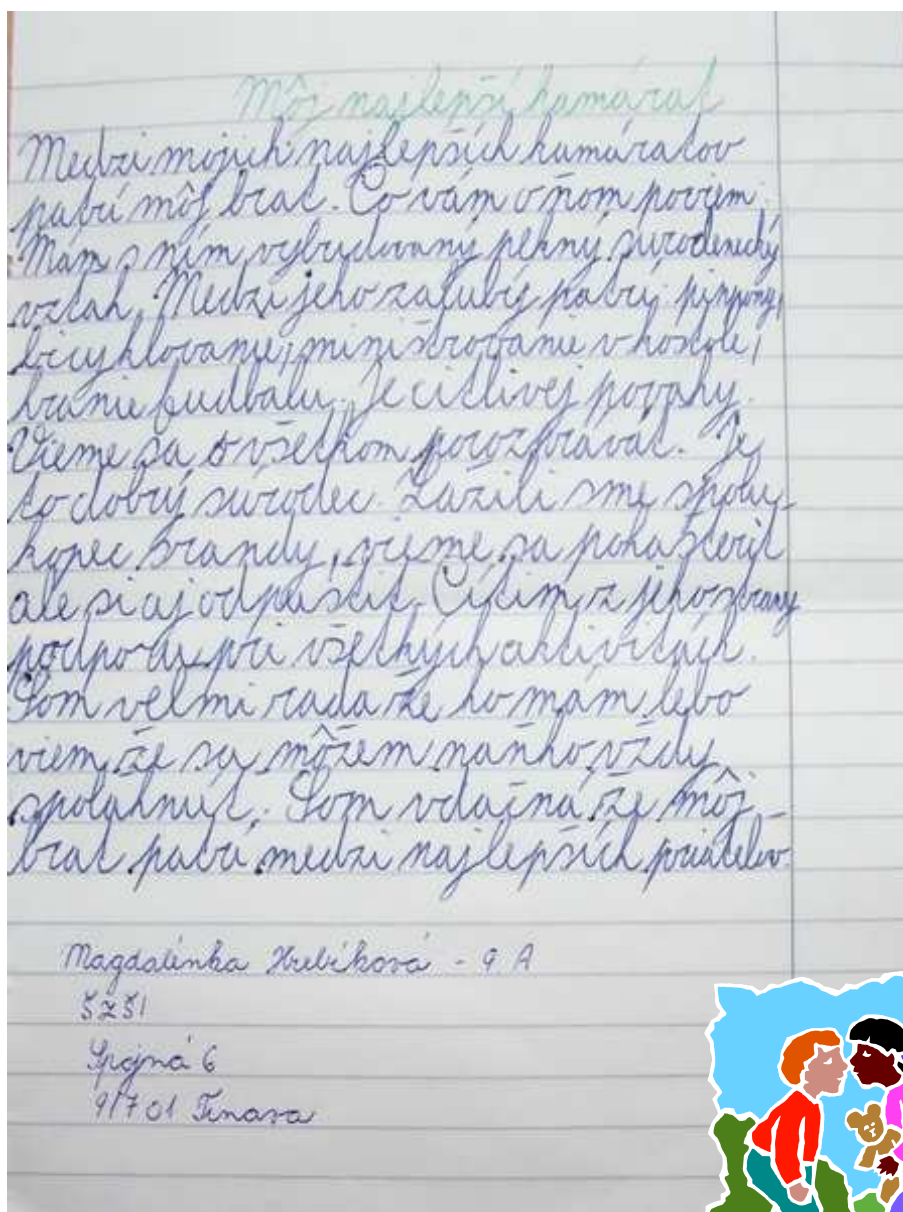 Môj najlepší kamárat
Medzi mojich najlepších kamáratov
patrí môj brat. Čo vám o ňom poviem.
Mám s ním vybudovaný pekný súrodenecký
vzťah. Medzi jeho záľuby patrí: pinpong,
bicyklovanie, miništrovanie v kostole,
hranie fudbalu. Je citlivej povahy.
Vieme sa o všetkom porozprávať. Je
to dobrý súrodec. Zažili sme spolu
kopec srandy, vieme sa pohašteriť
ale si aj odpustiť. Cítim z jeho strany
podporu pri všetkých aktivitách.
Som veľmi rada že ho mám lebo
viem že sa môžem naňho vždy
spoľahnúť. Som vďačná že môj
brat patrí medzi najlepších priateľov
Magdalénka Hrebíková - 9 A
ŠZŠI
Spojná 6
917 01 Trnava